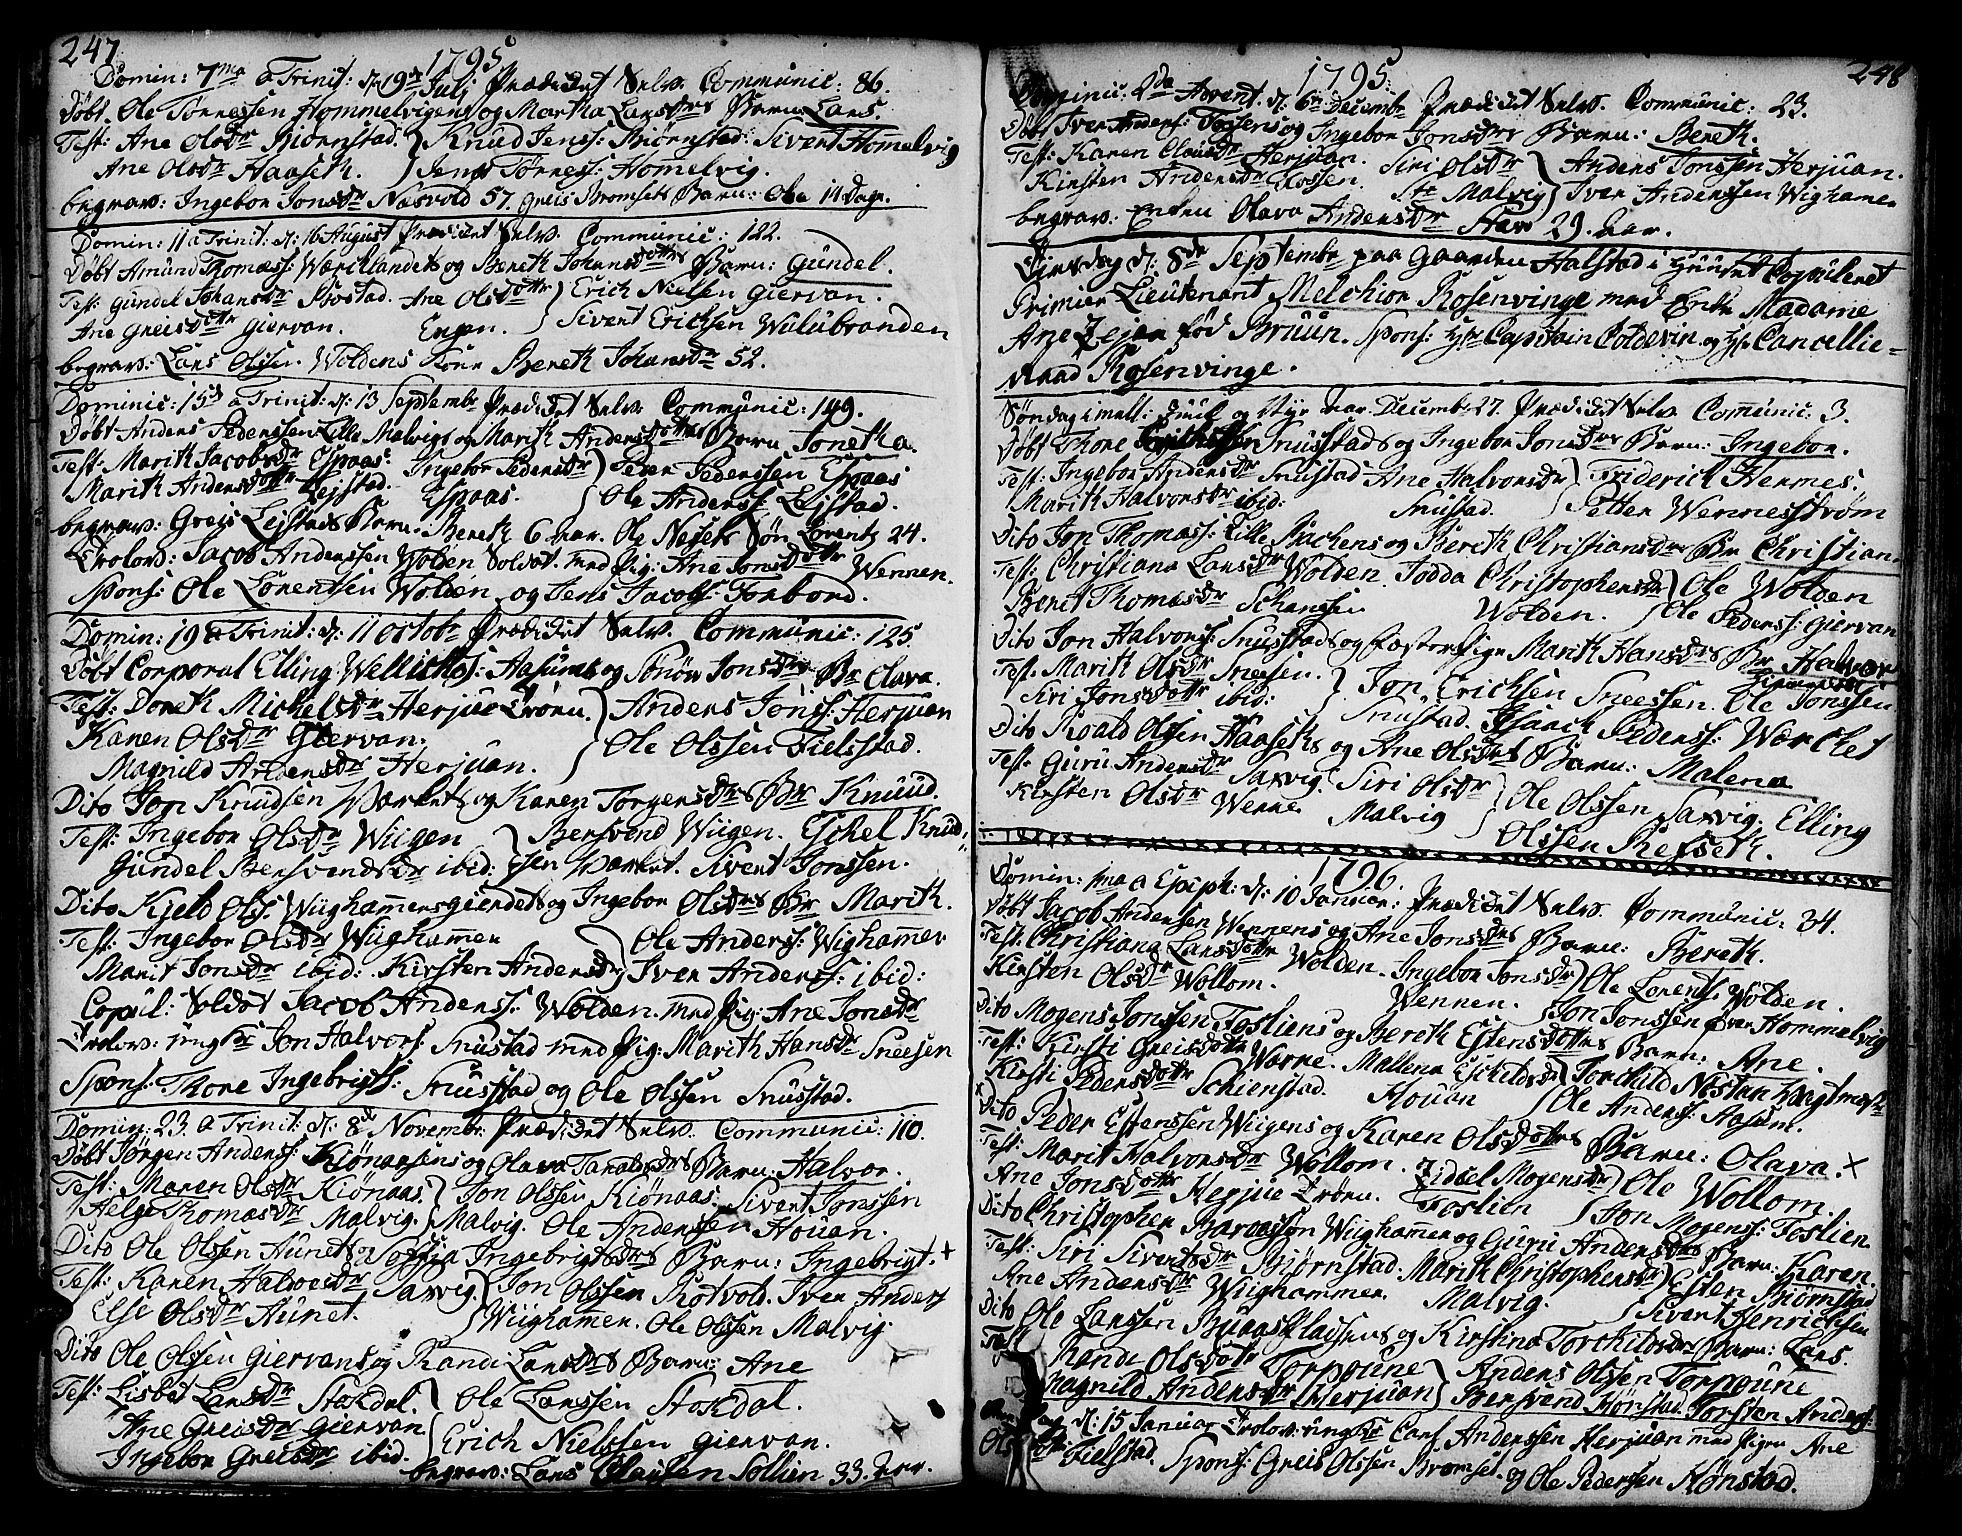 247
1795
Domin: 7ma a Trinit: d. 19de Julj Prædicket Selv. Communic: 86.
Døbt Ole Tørressen Hommelvigens og Martha Larsdrs Barn Lars.
Test: Ane Olsdr Biørnstad. Knud Jenss: Biørnstad: Sivert Homelvig
Ane Olsdr Haaseth. Jens Tørress: Homelvig.
begrav: Ingebor Jonsdr Næsvold 57. Greis Bromsets Barn: Ole 14 Dage.
Domin: 11 a Trinit: d: 16 August Prædicket Selv. Communic: 122.
Døbt Amund Thomæss: Værichlandets og Bereth Johansdotters Barn: Gundel.
Test: Gundel Johansdr Ane Olsdottr Erich Nielsen Giervan.
Ane Greisdottr Giervan. Engen. Sivert Erichsen Wulubranden
begrav: Lars Olssen Woldens Kone Bereth Johansdr 52.
Dominic: 15 a Trinit: d: 13 Septembr Prædicket Selv. Communic: 149.
Døbt Anders Pederssen Lille Malvigs og Marith Andersdotters Barn Jonetha.
Test: Marith Jacobsdr Espaas: Ingebor Pedersdr Peder Pederssen Espaas
Marith Andersdottr Leistad. Espaas. Ole Anderss: Leistad.
begrav: Greis Leistads Barn: Bereth 6 aar. Ole Nesets Søn Lorentz 24.
Trolov: Jacob Anderssen Wolden Soldat med Pig: Ane Jonsdottr Wennen.
Spons: Ole Lorentsen Wolden og Jens Jacobs: Forbord.
Domin: 19 a Trinit: d: 11 Octobr Prædicket Selv. Communic: 125.
Døbt Corporal Elling Wellichs: Aasums og Jonsdrs Br Olava.
Test: Doreth Michelsdr Herjue Trøen. Anders Jonss: Herjuan
Karen Olsdr Giervan. Ole Olssen Fielstad.
Magnild Arntsensdr Herjuan.
Dito Jon Knudsen Værkets og Karen Jørgensdrs Br Knuud.
Test: Ingebor Olsdr Wiigen Bersvend Wiigen. Eschel Knud
Gundel Bersvendsdr ibid: sen Værket. Sivert Jonssen.
Dito Kield Ols: Wiighammersgierdets og Ingebor Olsdrs Br Marith.
Test: Ingebor Olsdr Wiighammer Ole Anderss: Wighammer
Marit Jonsdr ibid: Kirsten Andersdr Iver Anderss: ibid:
Copul: Soldat Jacob Anderss: Wolden med Pig: Ane Jonsdr
Trolov: ungkr Jon Halvors: Snustad med Pig: Marith Hansdr Sneesen
Spons: Thore Ingebrigts: Snusstad og Ole Olssen Snusstad.
Domin: 23 a Trinit: d: 8de Novembr: Prædicket Selv. Communic: 110.
Døbt Jørgen Anderss: Kiønaasens og Olava Taraldsdrs Barn: Halvor.
Test: Maren Olsdr Kiønaas. Jon Olssen Kiønaas: Sivert Jonssen
Helge Thomasdr Malvig. Malvig. Ole Anderssen Houan.
Dito Ole Olssen Aunets og Soffia Ingebrigtsdrs Barn: Ingebrigt. +
Test: Karen Halvorsdr Saxvig. Jon Olssen Rotvold. Iver Anderss
Else Olsdr Aunet. Wiighammer. Ole Olssen Malvig.
Dito Ole Olssen Giervans og Randi Larsdrs Barn: Ane
Test: Lisbet Larsdr Stokdal. Ole Larssen Stokdal.
Ane Greisdr Giervan Erich Nielssen Giervan.
Ingebor Greisdr ibid.
begrav: Lars Olaussen Sollien 33 aar.
248
1795.
Dominic: 2da Advent d: 6te Decembr Prædicket Selv. Communic: 23.
Døbt Iver Anderss: Fossens og Ingebor Jonsdrs Barn: Bereth.
Test: Karen Olausdr Herjuan. Siri Olsdr Anders Jonssen Herjuan.
Kirsten Andersdr Fossen. St: Malvig Iver Anderssen Wighamer
begrav: Enken Olava Andersdr Hav 29. aar.
Tirsdag d: 8de Septembr paa Gaarden Halstad i Huuset Copuleret
Primier Lieutenant Melchior Rosenvinge med Enke Madame
Ane Zejer fød Bruun. Spons: Hr Capitain Coldevin og Hr Cancellie=
raad Rosenvinge.
Søndag imell: Juul og Nyt aar. Decembr 27. Prædicket Selv. Comunic: 3.
Døbt Thore Snusstads og Ingebor Jonsdrs Barn: Ingebor.
Test: Ingebor Andersdr Snusstad Ane Halvorsdr Friderich Hermes.
Marith Halvorsdr ibid: Snustad. Petter Wennesstrøm
Dito Jon Thomass: Lille Bachens og Bereth Christiansdrs Br Christian.
Test: Christiana Larsdr Wolden. Todda Christophersdr Ole Wolden
Berit Thomasdr Schanssen Wolden. Ole Pederss: Giervan
Dito Jon Halvorss: Snustads og fæster Pige Marith Hansdrs Br Halvor
Test: Marith Olsdr Sneesen. Jon Erichsen Sneessen. Ole Jonssen
Siri Jonsdottr ibid: Snustad. Isaack Pederss: Wærchet
Dito Roald Olssen Haaseths og Ane Olsdrs Barn: Malena
Test: Guru Andersdr Saxvig. Siri Olsdr Ole Olssen Saxvig. Elling
Kirsten Olsdr Wenne Malvig Olssen Refseth.
1796.
Domin: 1ma a Epiph: d: 10 Januar: Prædicket Selv. Communic: 34.
Døbt Jacob Andersen Wennens og Ane Jonsdrs Barn: Bereth.
Test: Christiana Larsdottr Wolden. Ingebor Jonsdr Ole Lorents: Wolden.
Kirsten Olsdr Wollom. Wennen. Jon Jonssen øver Hommelvig
Dito Mogens Jonssen Fosliens og Bereth Estensdottrs Barn: Ane.
Test: Kirsti Greisdottr Warne. Mallena Eschildsdr Torchild Nøstan
Kirsti Pedersdottr Schienstad. Houan Ole Anderss: Aasum.
Dito Peder Estenssen Wiigens og Karen Olsdottrs Barn: Olava. +
Test: Marit Halvorsdr Wollom. Zidsel Mogensdr Ole Wollom.
Ane Jonsdottr Herjue Trøen. Foslien Jon Mogenss: Foslien
Dito Christopher Baroassøn Wiighammer og Guru Andersdrs Barn: Karen.
Test: Siri Sivertsdr Biørnstad. Marith Christophersdr Esten Biørnstad
Ane Andersdr Wiighammer. Malvig. Sivert Henrichsen
Dito Ole Larssen Buaas Pladsens og Kirstina Torchildsdrs Barn: Lars.
Test: Randi Olsdottr Torpoune Anders Olssen Torpoune
Magnild Andersdr Herjuan Bersvend Hønstad. Torsten Anderss:
d: 15 Januar Trolov: ungkr Lars Anderssen Herjuan med Pigen Ane
Fielstad. Spons: Greis Olssen Bromset og Ole Pedersen Hønstad.